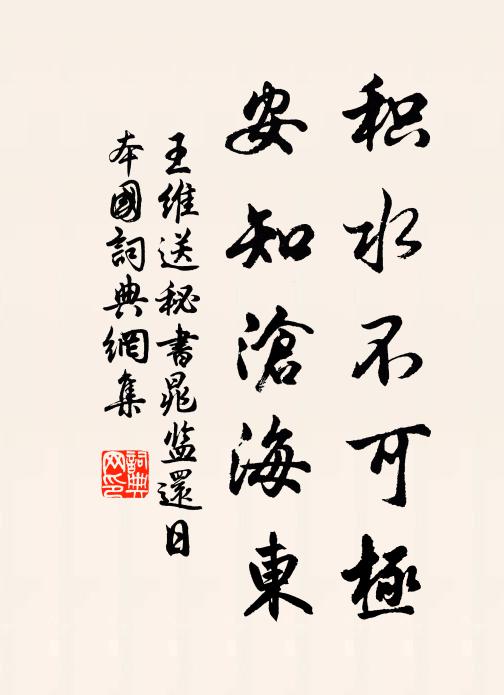 积水不可極
安知滄海東
王維送秘書晁监還日
本國詞典網集
詞典
网印